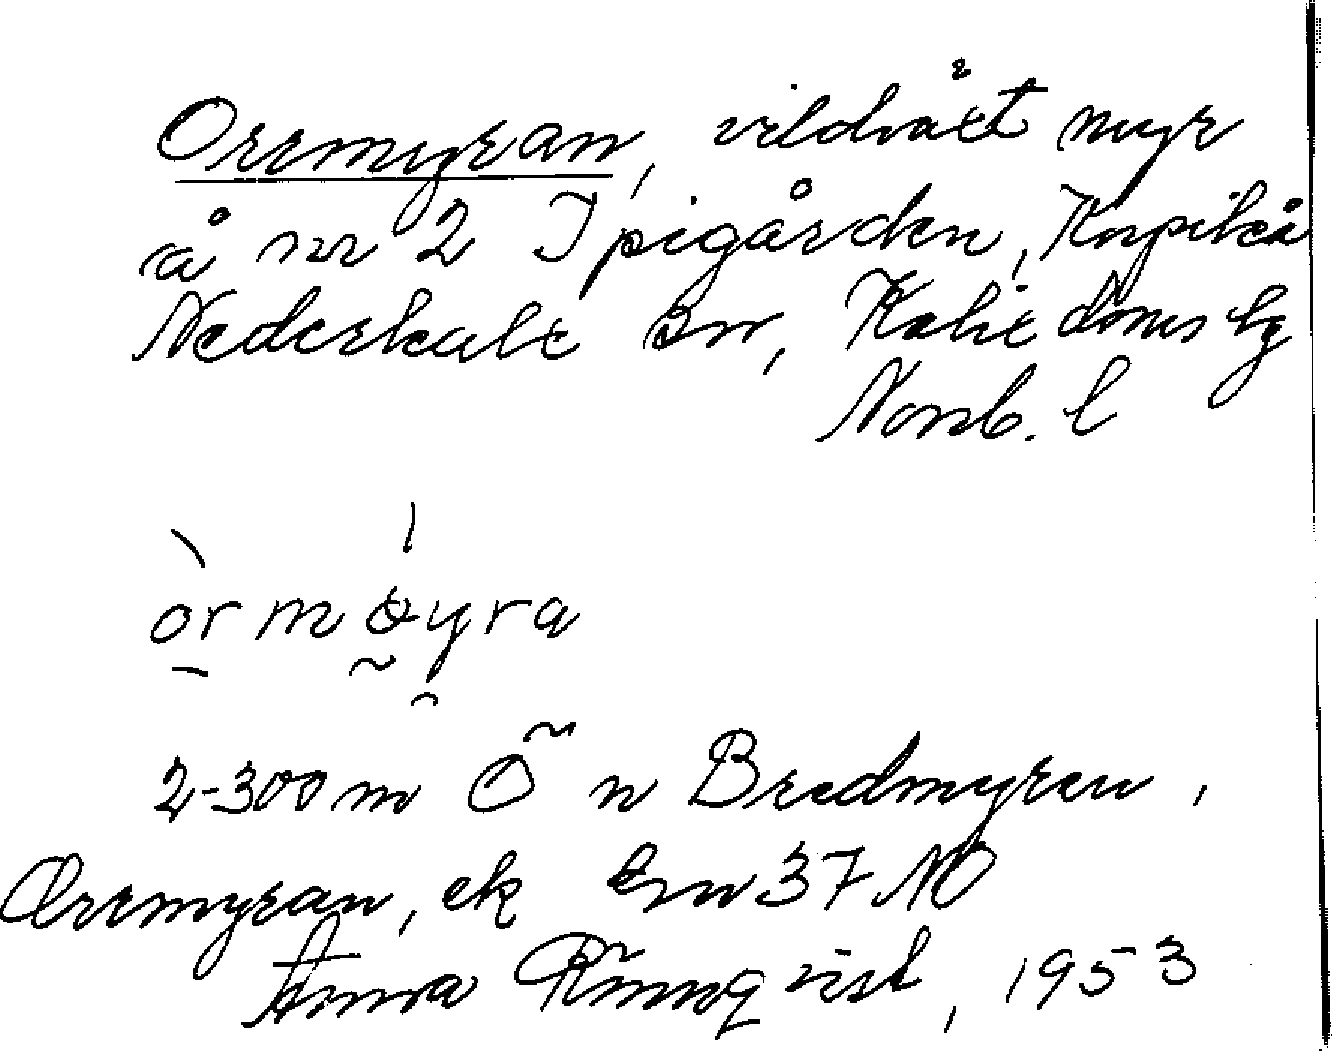 Orrmyran, vildväxt myr
å nr 2 Ipigården, Korpikå
Nederkalix sn, Kalix domsbg
Norrb. l
òrmøyra
2-300 m Ö n Bredmyran,
Orrmyran, ek Gsn 37 NO
Anna Rönnqvist, 1953